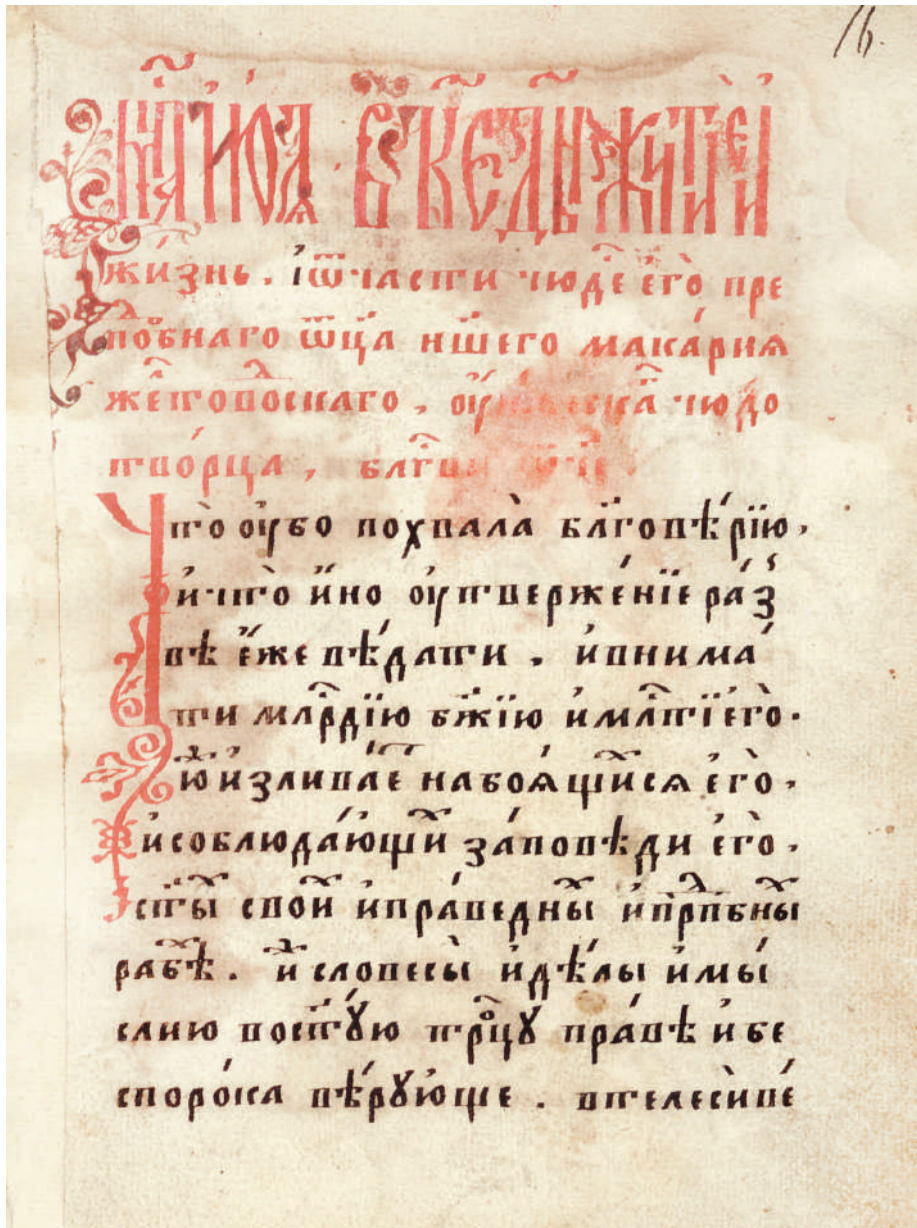 16.
мц҃а и҆ю́ля. въ к҃е де́нь житїѐ и҆
жи́знь. і҆ ѿча́сти чюде҆ е҆го̀ пре
пⷣобнаго ѿц҃а нш҃его мака́рия
желтово́скаго, оу҆́ скаⷢ чюдо
тво́рца, блⷭ҇ви ѿ҆ч҃е.
Что̀ оу҆бо похвала̀ бл҃гове́рїю,
и҆ что̀ и҆́но оу҆тверже́нїе ра́з
вѣ е҆́же вѣ́дати. и҆ внима́
ти млⷭ҇рдїю бж҃їю и҆ млⷭ҇ти е҆го̀.
ю҆́ и҆злива́еⷮ на боя́щиⷯся е҆го̀,
и҆ соблюда́ющиⷯ за́повѣди е҆го̀.
ст҃ыⷯ свои́ⷯ и҆ пра́ведныⷯ и҆ прпⷣбныⷯ
рабѣⷯ. и҆́ словесы̀ и҆ дѣ́лы и҆ мы́
слию во ст҃ꙋ́ю трⷪ҇цꙋ пра́вѣ и҆ бе
споро́ка вѣ́рꙋюще. в телесѝ ве́